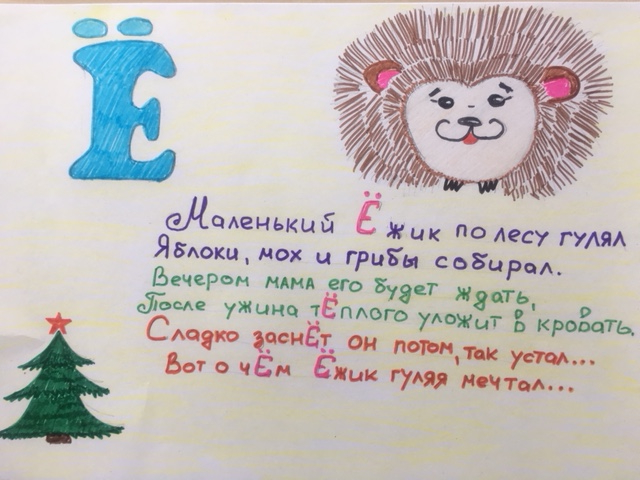 Ё
Маленький Ёжик по лесу гулял
Яблоки, мох и грибы собирал.
Вечером мама его будет ждать,
После ужина тЁплого уложит в кровать.
Сладко заснЁт он потом, так устал...
Вот о чЁм Ёжик гуляя мечтал...